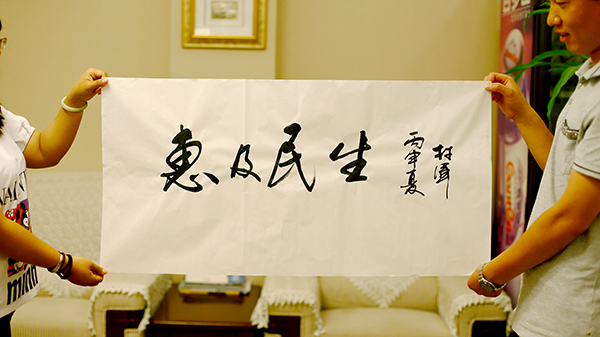 惠及民生
丙申夏